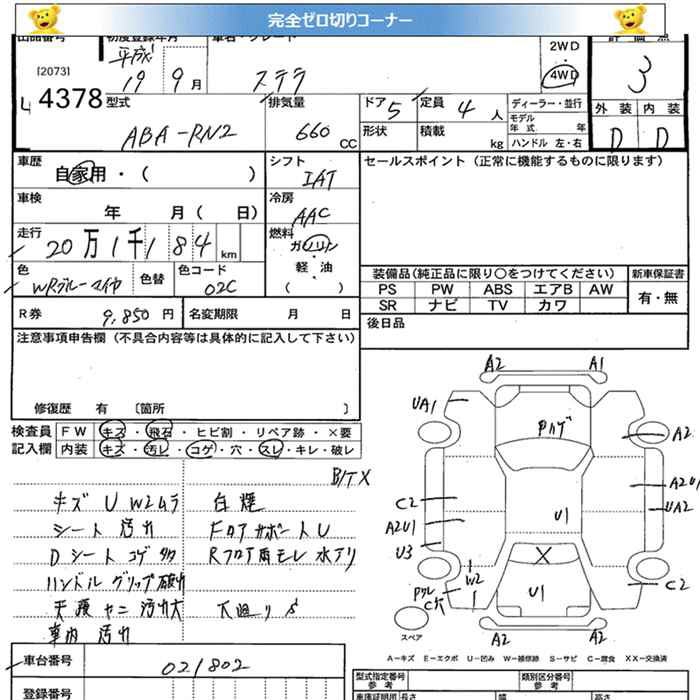 完全ゼロ切りコーナー
出品番号 初度登録年月 車名・グレード 評価点
[2073] 平成 19 9月 ステラ 2WD 4WD 3
4378 型式 ABA-RN2 排気量 660 CC ドア 5 定員 4人 ディーラー・並行
形状 積載 kg モデル年式 年 ハンドル 左・右
外装 D 内装 D
車歴 自家用・( )
シフト IAT
セールスポイント (正常に機能するものに限ります)
車検 年 月( 日)
冷房 AAC
走行 20万1千184 km
燃料 ガソリン 軽油 ( )
色 WRブルーマイカ 色替 色コード 02C
装備品(純正品に限り○をつけてください) 新車保証書
PS PW ABS エアB AW 有・無
SR ナビ TV カワ
R券 9,850円 名変期限 月 日
後日品
注意事項申告欄 (不具合内容等は具体的に記入して下さい)
修復歴 有 〔箇所 〕
検査員記入欄 FW キズ・飛石・ヒビ割・リペア跡・×要
内装 キズ・汚レ・コゲ・穴・スレ・キレ・破レ
B/TX
キズ U W2ムラ 白煙
シート 汚れ Fロアサポート U
Dシート コゲ 多 Rフロア雨モレ 水アリ
ハンドル グリップ破れ
天張 ヤニ 汚れ大 下廻り S
車内 汚れ
A2 A1
UA1 Pハゲ A2
C2 A2U1
A2U1 U1 UA2
U3 X
W2 U1 C2
A2 A2
スペア
A-キズ E-エクボ U-凹み W-補修跡 S-サビ C-腐食 XX-交換済
車台番号 021802
型式指定番号 参考 類別区分番号 参考
登録番号 車庫証明 長さ 幅 高さ